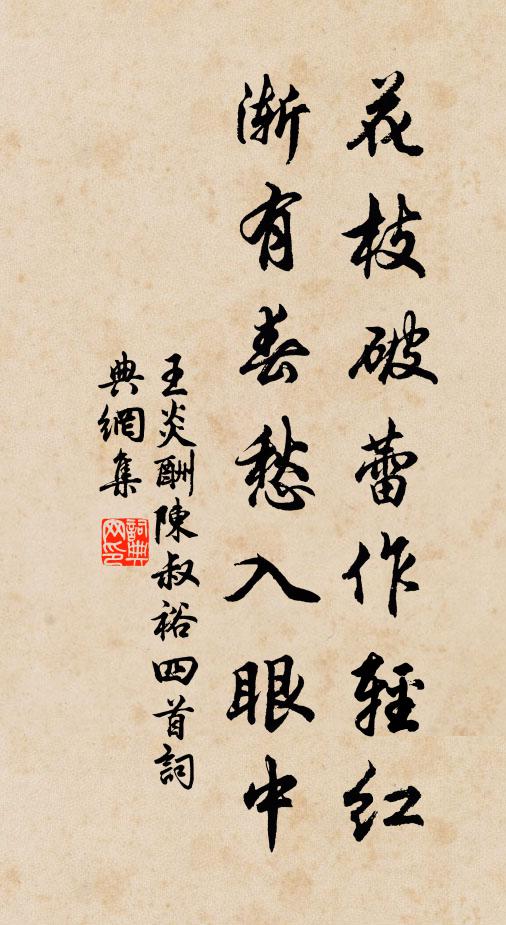 花枝破蕾作輕紅
漸有春愁入眼中
王炎酬陳叔裕四首詞
典網集
詞典網印